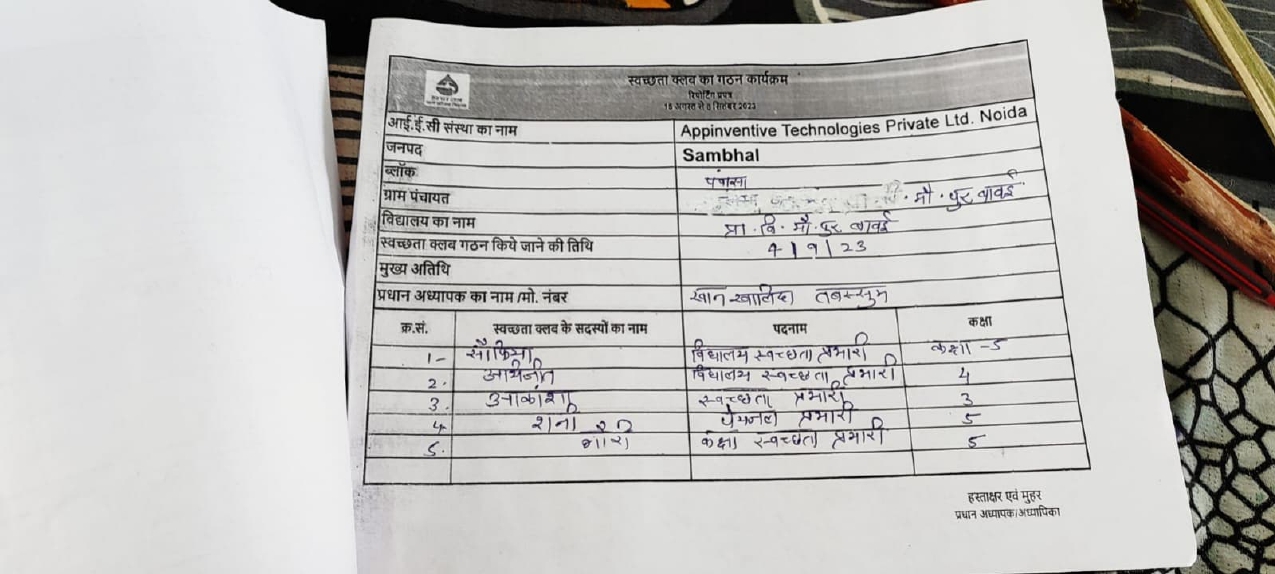 स्वच्छता क्लब का गठन कार्यक्रम
रिपोर्टिंग प्रपत्र
16 अगस्त से 8 सितंबर 2023
आई.ई.सी संस्था का नाम Appinventive Technologies Private Ltd. Noida
जनपद Sambhal
ब्लॉक पंवासा
ग्राम पंचायत मौ. पुर बावई
विद्यालय का नाम प्रा. वि. मौ. पुर बावई
स्वच्छता क्लब गठन किये जाने की तिथि 4|9|23
मुख्य अतिथि
प्रधान अध्यापक का नाम /मो. नंबर खान खालिदा तबस्सुम
क्र.सं. स्वच्छता क्लब के सदस्यों का नाम पदनाम कक्षा
1- सौफिया विद्यालय स्वच्छता प्रभारी कक्षा -5
2. विद्यालय स्वच्छता प्रभारी 4
3. आकांशा स्वच्छता प्रभारी 3
4 पेयजल प्रभारी 5
5. गौरी कक्षा स्वच्छता प्रभारी 5
हस्ताक्षर एवं मुहर
प्रधान अध्यापक/अध्यापिका